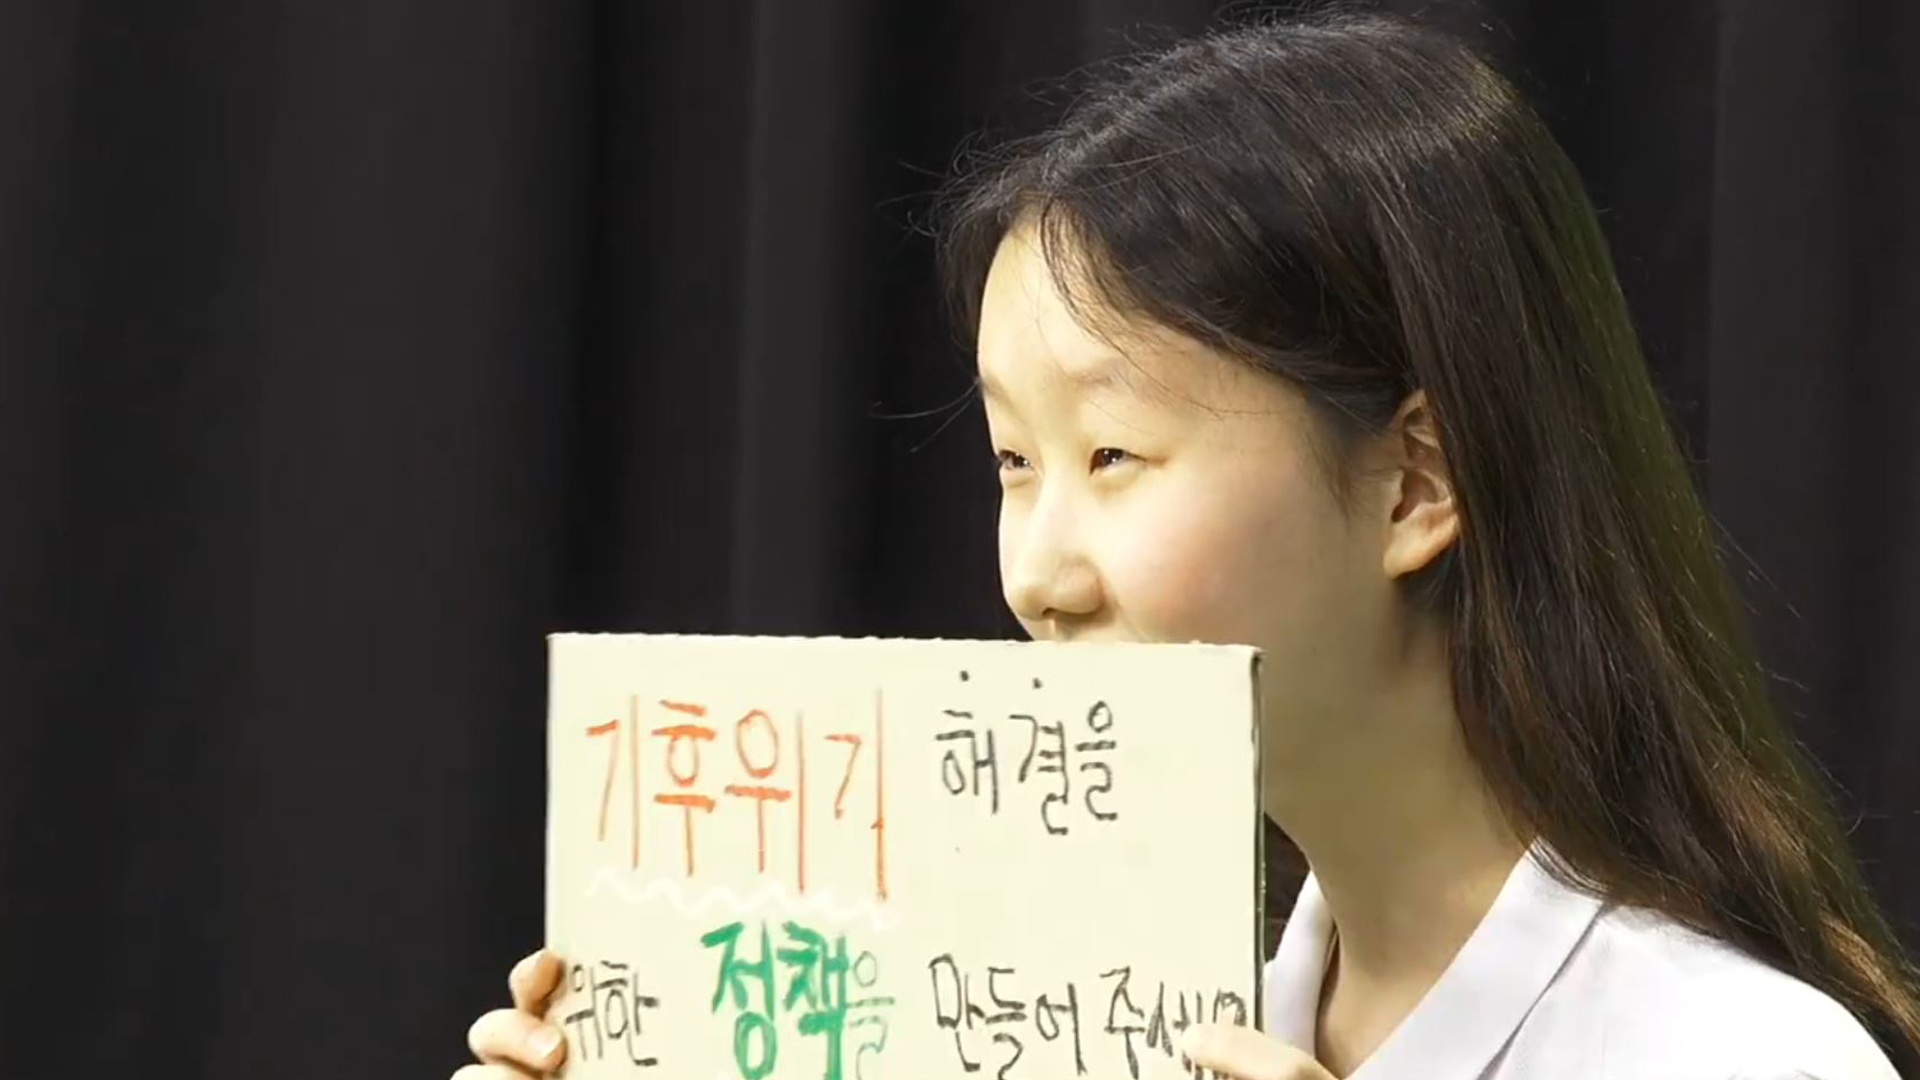 기후위기 해결을
위한 정책을 만들어